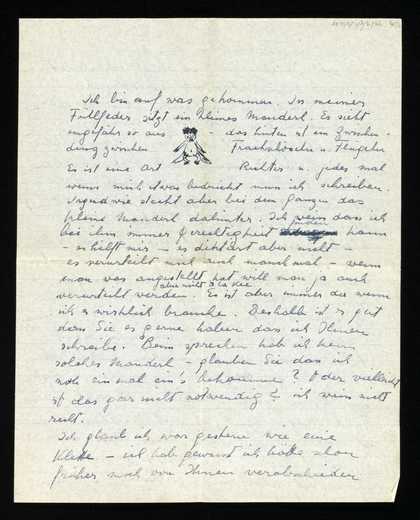 Ich bin auf was gekommen. In meiner
Füllfeder sitzt ein kleines Manderl. Es sieht
ungefähr so aus - das hinten ist ein Zwischen-
ding zwischen Frackschössen u. Flügerln
Es ist eine Art Richter - u. jedes mal
wenn mich etwas bedrückt muss ich schreiben.
Irgendwie steckt aber bei dem ganzen das
kleine Manderl dahinter. Ich weiss dass ich
bei ihm immer Gerechtigkeit finden kann
- es hilft mir - es diktiert aber nicht -
es verurteilt mich auch manchmal - wenn
man was angestellt hat will man ja auch
verurteilt werden. Es ist aber immer da wenn
ich es wirklich brauche. Deshalb ist es gut
dass Sie es gerne haben dass ich Ihnen
schreibe. Beim sprechen hab ich kein
solches Manderl - glauben Sie dass ich
noch einmal eins bekomme? Oder vielleicht
ist das gar nicht notwendig? ich weiss nicht
recht.
Ich glaub ich war gestern wie eine
Klette - ich hab gewusst ich hätte schon
früher mich von Ihnen verabschieden